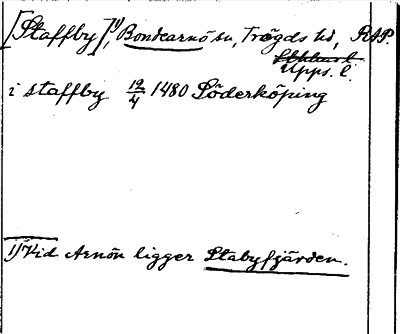 [Staffby]¹⁾, Bondearnö sn, Trögds hd, RAP.
Upps. l.
i staffby 12/4 1480 Söderköping
1) Vid Arnön ligger Stabyfjärden.